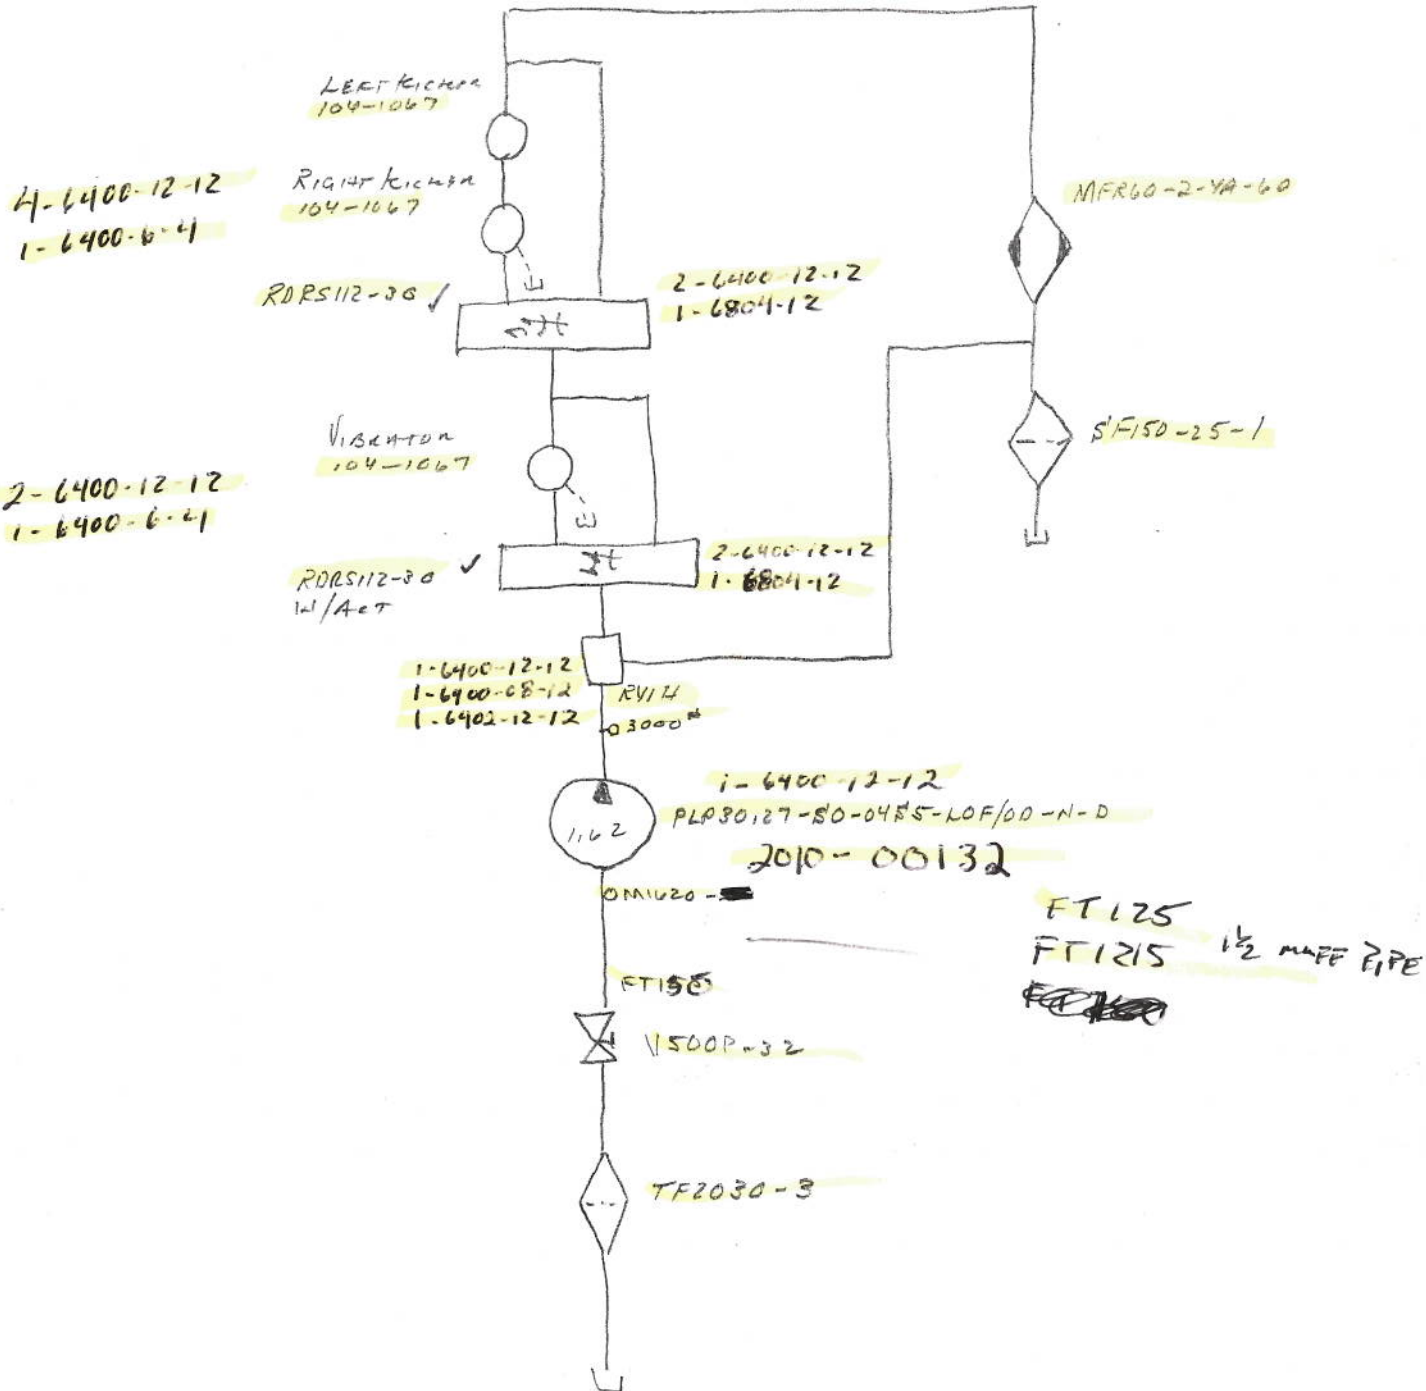 LEFT KICKER
104-1067
4-6400-12-12
1-6400-6-4
RIGHT KICKER
104-1067
MFR60-2-YA-60
RDRS112-30 ✓
2-6400-12-12
1-6804-12
VIBRATOR
104-1067
SF150-25-1
2-6400-12-12
1-6400-6-4
RDRS112-30 ✓
W/ACT
2-6400-12-12
1-6804-12
1-6400-12-12
1-6400-08-12
1-6402-12-12
3000#
1-6400-12-12
1.62
2010-00132
FT125
FT1215
1½
PIPE
V500P-32
TF2030-3